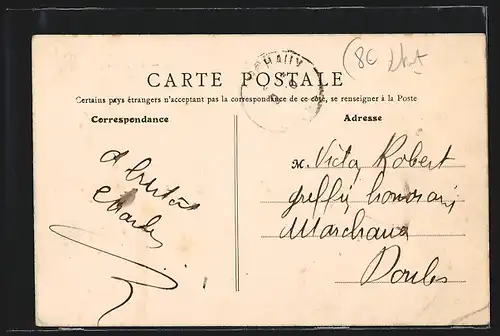 CHAUNY
CARTE POSTALE
Certains pays étrangers n'acceptant pas la correspondance de ce côté, se renseigner à la Poste
Correspondance
Adresse
Charles
M. Victor Robert
greffier honoraire
Marchaux
Doubs